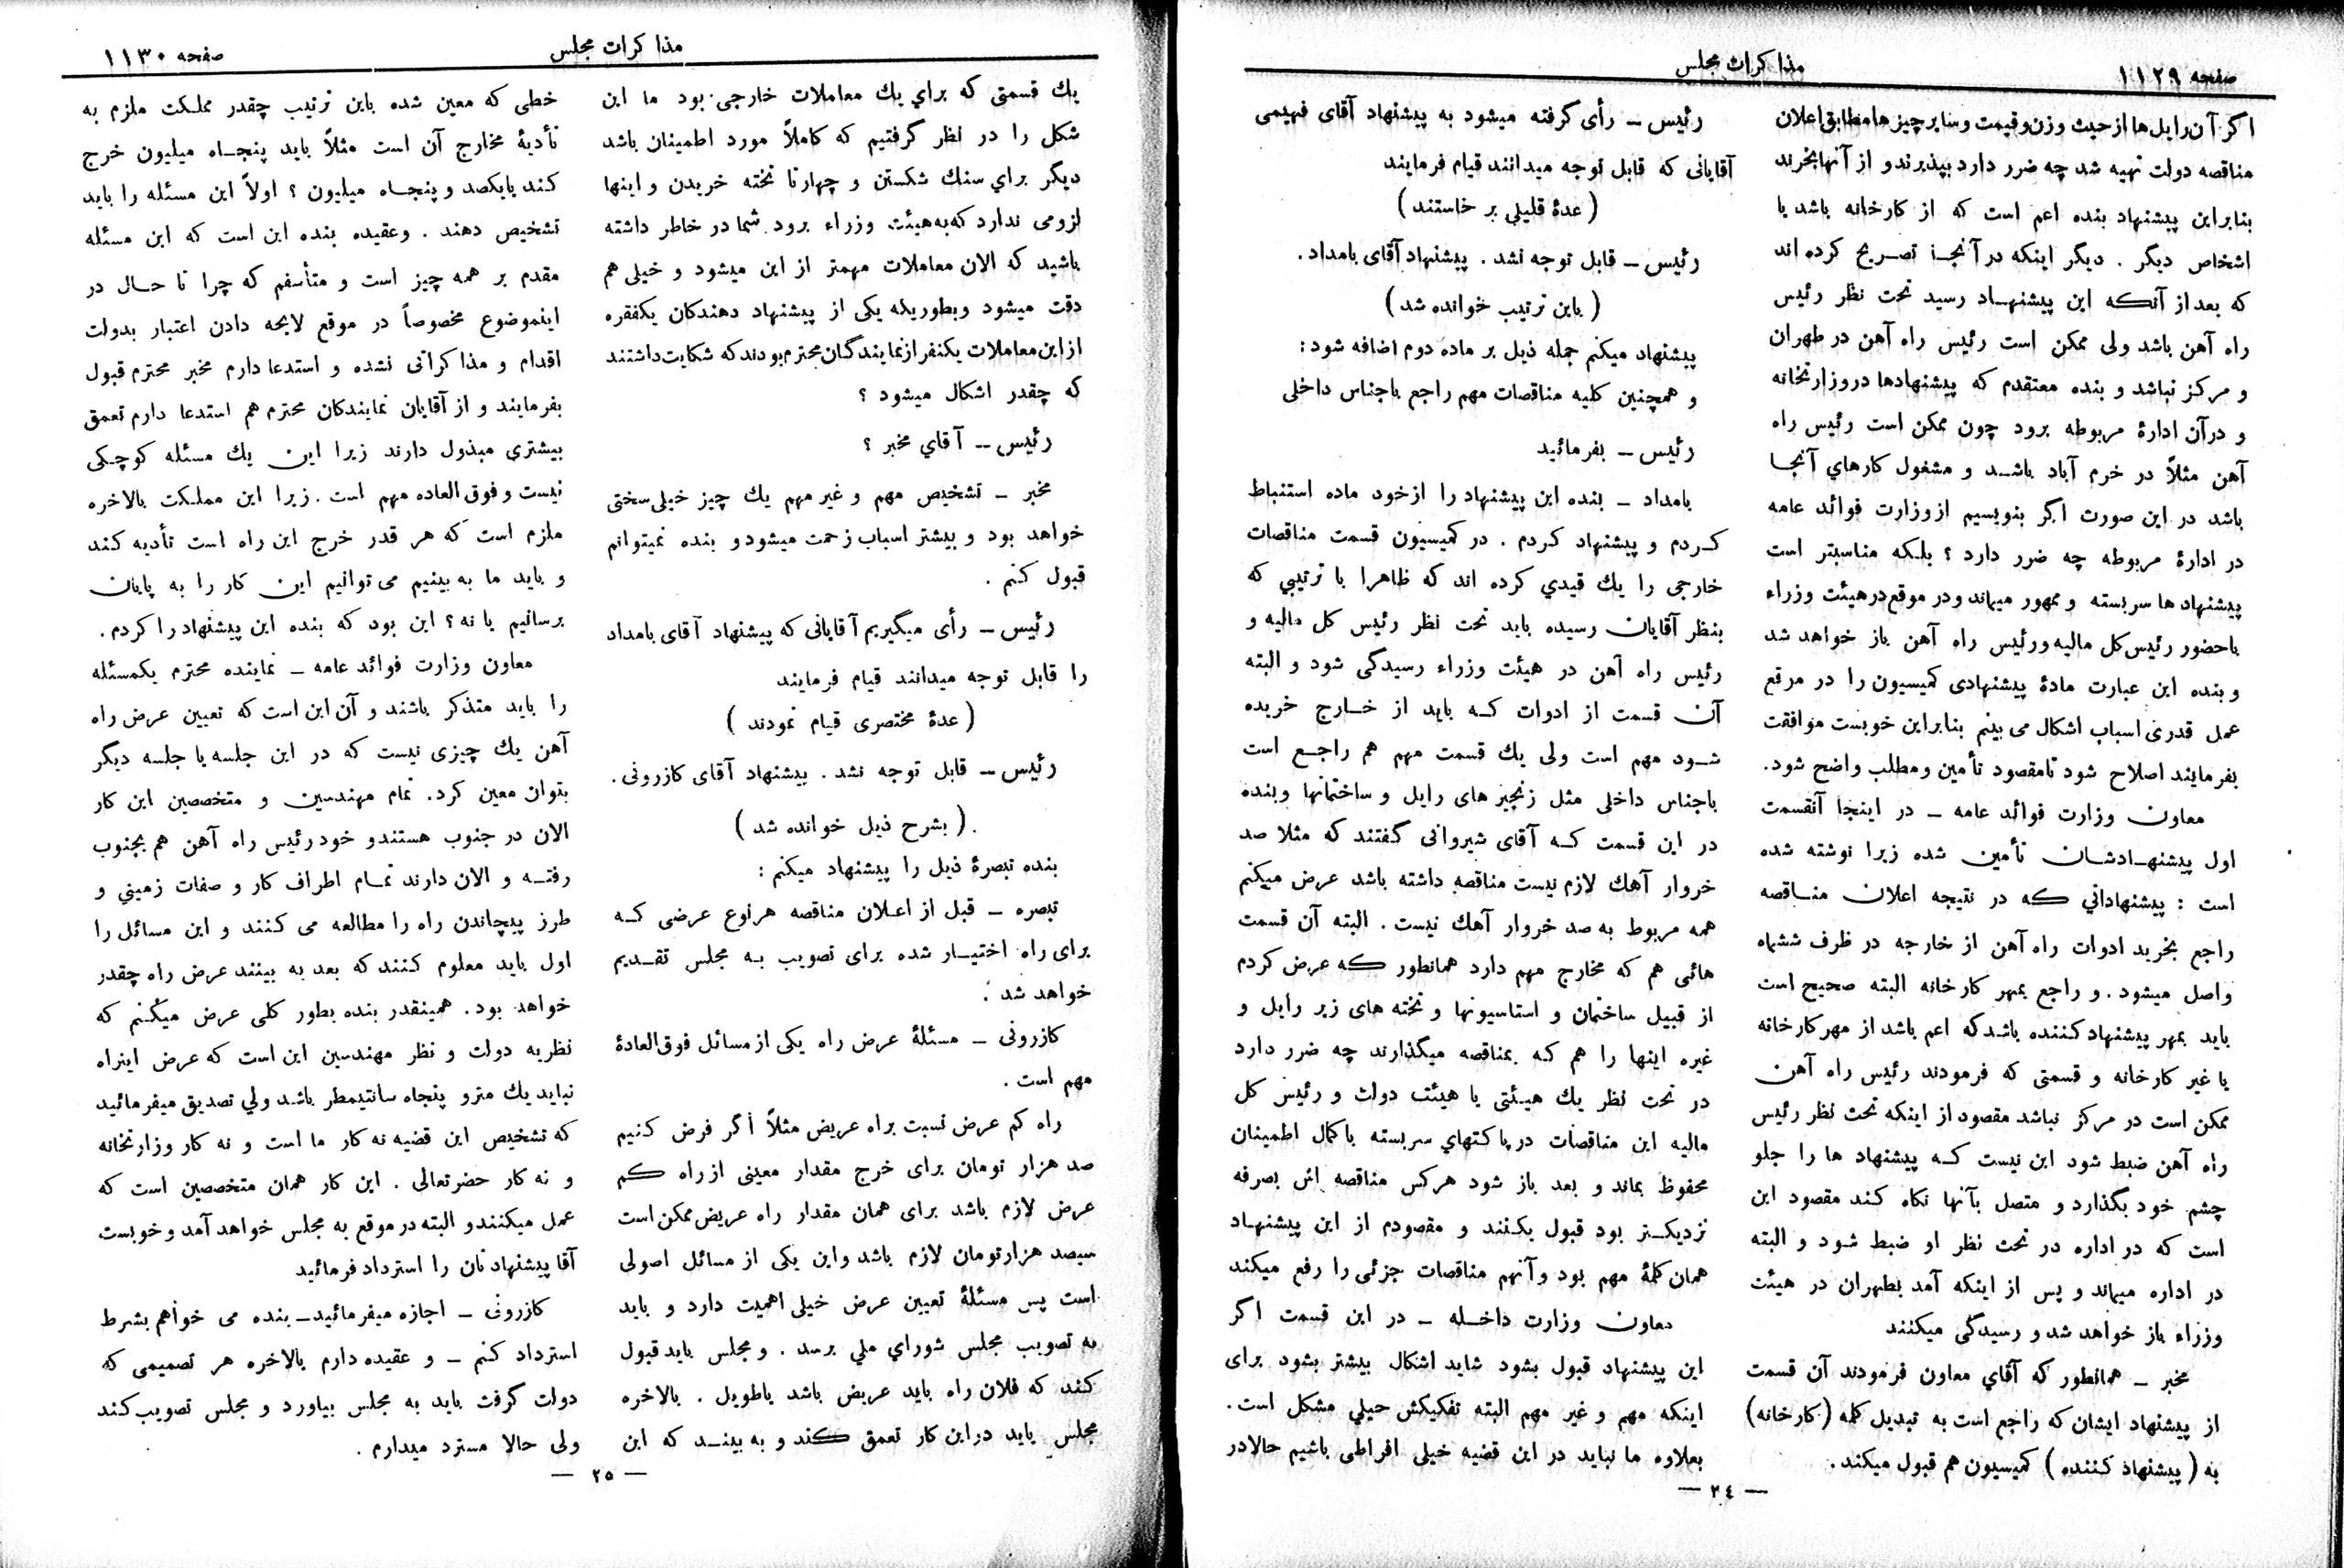 صفحه ۱۱۲۹
مذاکرات مجلس
اگر آن رایل‌ها از حیث وزن و قیمت و سایر چیز ها مطابق اعلان
مناقصه دولت تهیه شد چه ضرر دارد بپذیرند و از آنها بخرند
بنابراین پیشنهاد بنده اعم است که از کارخانه باشد یا
اشخاص دیگر . دیگر اینکه در آنجا تصریح کرده اند
که بعد از آنکه این پیشنهاد رسید تحت نظر رئیس
راه آهن باشد ولی ممکن است رئیس راه آهن در طهران
و مرکز نباشد و بنده معتقدم که پیشنهادها در وزارتخانه
و در آن ادارۀ مربوطه برود چون ممکن است رئیس راه
آهن مثلاً در خرم آباد باشد و مشغول کارهای آنجا
باشد در این صورت اگر بنویسیم از وزارت فوائد عامه
در ادارۀ مربوطه چه ضرر دارد ؟ بلکه مناسبتر است
پیشنهاد ها سر بسته و ممهور میماند و در موقع در هیئت وزراء
با حضور رئیس کل مالیه و رئیس راه آهن باز خواهد شد
و بنده این عبارت مادۀ پیشنهادی کمیسیون را در موقع
عمل قدری اسباب اشکال می بینم بنابراین خوبست موافقت
بفرمایند اصلاح شود تا مقصود تأمین و مطلب واضح شود.
معاون وزارت فوائد عامه ـ در اینجا آنقسمت
اول پیشنهادشان تأمین شده زیرا نوشته شده
است : پیشنهاداتی که در نتیجه اعلان مناقصه
راجع بخرید ادوات راه آهن از خارجه در ظرف ششماه
واصل میشود . و راجع بمهر کارخانه البته صحیح است
باید بمهر پیشنهاد کننده باشد که اعم باشد از مهر کارخانه
یا غیر کارخانه و قسمتی که فرمودند رئیس راه آهن
ممکن است در مرکز نباشد مقصود از اینکه تحت نظر رئیس
راه آهن ضبط شود این نیست که پیشنهاد ها را جلو
چشم خود بگذارد و متصل بآنها نگاه کند مقصود این
است که در اداره در تحت نظر او ضبط شود و البته
در اداره میماند و پس از اینکه آمد بطهران در هیئت
وزراء باز خواهد شد و رسیدگی میکنند
مخبر ـ همانطور که آقای معاون فرمودند آن قسمت
از پیشنهاد ایشان که راجع است به تبدیل کلمه (کارخانه)
به ( پیشنهاد کننده ) کمیسیون هم قبول میکند .
رئیس ـ رأی گرفته میشود به پیشنهاد آقای فهیمی
آقایانی که قابل توجه میدانند قیام فرمایند
( عدۀ قلیلی بر خاستند )
رئیس ـ قابل توجه نشد . پیشنهاد آقای بامداد .
( باین ترتیب خوانده شد )
پیشنهاد میکنم جمله ذیل بر ماده دوم اضافه شود :
و همچنین کلیه مناقصات مهم راجع باجناس داخلی
رئیس ـ بفرمائید
بامداد ـ بنده این پیشنهاد را از خود ماده استنباط
کردم و پیشنهاد کردم . در کمیسیون قسمت مناقصات
خارجی را یك قیدی کرده اند که ظاهرا با ترتیبی که
بنظر آقایان رسیده باید تحت نظر رئیس کل مالیه و
رئیس راه آهن در هیئت وزراء رسیدگی شود و البته
آن قسمت از ادوات که باید از خارج خریده
شود مهم است ولی یك قسمت مهم هم راجع است
باجناس داخلی مثل زنجیر های رایل و ساختمانها و بنده
در این قسمت که آقای شیروانی گفتند که مثلا صد
خروار آهك لازم نیست مناقصه داشته باشد عرض میکنم
همه مربوط به صد خروار آهك نیست . البته آن قسمت
هائی هم که مخارج مهم دارد همانطور که عرض کردم
از قبیل ساختمان و استاسیونها و تخته های زیر رایل و
غیره اینها را هم که بمناقصه میگذارند چه ضرر دارد
در تحت نظر یك هیئتی یا هیئت دولت و رئیس کل
مالیه این مناقصات در پاکتهای سربسته با کمال اطمینان
محفوظ بماند و بعد باز شود هرکس مناقصه اش بصرفه
نزدیکتر بود قبول بکنند و مقصودم از این پیشنهاد
همان کلمۀ مهم بود و آنهم مناقصات جزئی را رفع میکند
معاون وزارت داخله ـ در این قسمت اگر
این پیشنهاد قبول بشود شاید اشکال بیشتر بشود برای
اینکه مهم و غیر مهم البته تفکیکش خیلی مشکل است .
بعلاوه ما نباید در این قضیه خیلی افراطی باشیم حالا در
— ۲٤ —
مذاکرات مجلس
صفحه ۱۱۳۰
یك قسمتی که برای یك معاملات خارجی بود ما این
شکل را در نظر گرفتیم که کاملاً مورد اطمینان باشد
دیگر برای سنك شکستن و چهار تا تخته خریدن و اینها
لزومی ندارد که به هیئت وزراء برود . شما در خاطر داشته
باشید که الان معاملات مهمتر از این میشود و خیلی هم
دقت میشود و بطوریکه یکی از پیشنهاد دهندگان یکفقره
از این معاملات یکنفر از نمایندگان محترم بودند که شکایت داشتند
که چقدر اشکال میشود ؟
رئیس ـ آقای مخبر ؟
مخبر ـ تشخیص مهم و غیر مهم یك چیز خیلی سختی
خواهد بود و بیشتر اسباب زحمت میشود و بنده نمیتوانم
قبول کنم .
رئیس ـ رأی میگیریم آقایانی که پیشنهاد آقای بامداد
را قابل توجه میدانند قیام فرمایند
( عدۀ مختصری قیام نمودند )
رئیس ـ قابل توجه نشد . پیشنهاد آقای کازرونی .
( بشرح ذیل خوانده شد )
بنده تبصرۀ ذیل را پیشنهاد میکنم :
تبصره ـ قبل از اعلان مناقصه هر نوع عرضی که
برای راه اختیار شده برای تصویب به مجلس تقدیم
خواهد شد .
کازرونی ـ مسئلۀ عرض راه یکی از مسائل فوق العادۀ
مهم است .
راه کم عرض نسبت براه عریض مثلاً اگر فرض کنیم
صد هزار تومان برای خرج مقدار معینی از راه کم
عرض لازم باشد برای همان مقدار راه عریض ممکن است
سیصد هزار تومان لازم باشد و این یکی از مسائل اصولی
است پس مسئلۀ تعیین عرض خیلی اهمیت دارد و باید
به تصویب مجلس شورای ملی برسد . و مجلس باید قبول
کند که فلان راه باید عریض باشد یا طویل . بالاخره
مجلس باید در این کار تعمق کند و به بیند که این
خطی که معین شده باین ترتیب چقدر مملکت ملزم به
تأدیۀ مخارج آن است مثلاً باید پنجاه میلیون خرج
کند یا یکصد و پنجاه میلیون ؟ اولاً این مسئله را باید
تشخیص دهند . و عقیده بنده این است که این مسئله
مقدم بر همه چیز است و متأسفم که چرا تا حال در
اینموضوع مخصوصاً در موقع لایحه دادن اعتبار بدولت
اقدام و مذاکراتی نشده و استدعا دارم مخبر محترم قبول
بفرمایند و از آقایان نمایندکان محترم هم استدعا دارم تعمق
بیشتری مبذول دارند زیرا این یك مسئله کوچکی
نیست و فوق العاده مهم است . زیرا این مملکت بالاخره
ملزم است که هر قدر خرج این راه است تأدیه کند
و باید ما به بینیم می توانیم این کار را به پایان
برسانیم یا نه ؟ این بود که بنده این پیشنهاد را کردم .
معاون وزارت فوائد عامه ـ نماینده محترم یکمسئله
را باید متذکر باشند و آن این است که تعیین عرض راه
آهن یك چیزی نیست که در این جلسه یا جلسه دیگر
بتوان معین کرد . تمام مهندسین و متخصصین این کار
الان در جنوب هستند و خود رئیس راه آهن هم بجنوب
رفته و الان دارند تمام اطراف کار و صفات زمینی و
طرز پیچاندن راه را مطالعه می کنند و این مسائل را
اول باید معلوم کنند که بعد به بینند عرض راه چقدر
خواهد بود . همینقدر بنده بطور کلی عرض میکنم که
نظریه دولت و نظر مهندسین این است که عرض اینراه
نباید یك مترو پنجاه سانتیمطر باشد ولی تصدیق میفرمائید
که تشخیص این قضیه نه کار ما است و نه کار وزارتخانه
و نه کار حضرتعالی . این کار همان متخصصین است که
عمل میکنند و البته در موقع به مجلس خواهد آمد و خوبست
آقا پیشنهادتان را استرداد فرمائید
کازرونی ـ اجازه میفرمائید ـ بنده می خواهم بشرط
استرداد کنم ـ و عقیده دارم بالاخره هر تصمیمی که
دولت گرفت باید به مجلس بیاورد و مجلس تصویب کند
ولی حالا مسترد میدارم .
— ۲٥ —